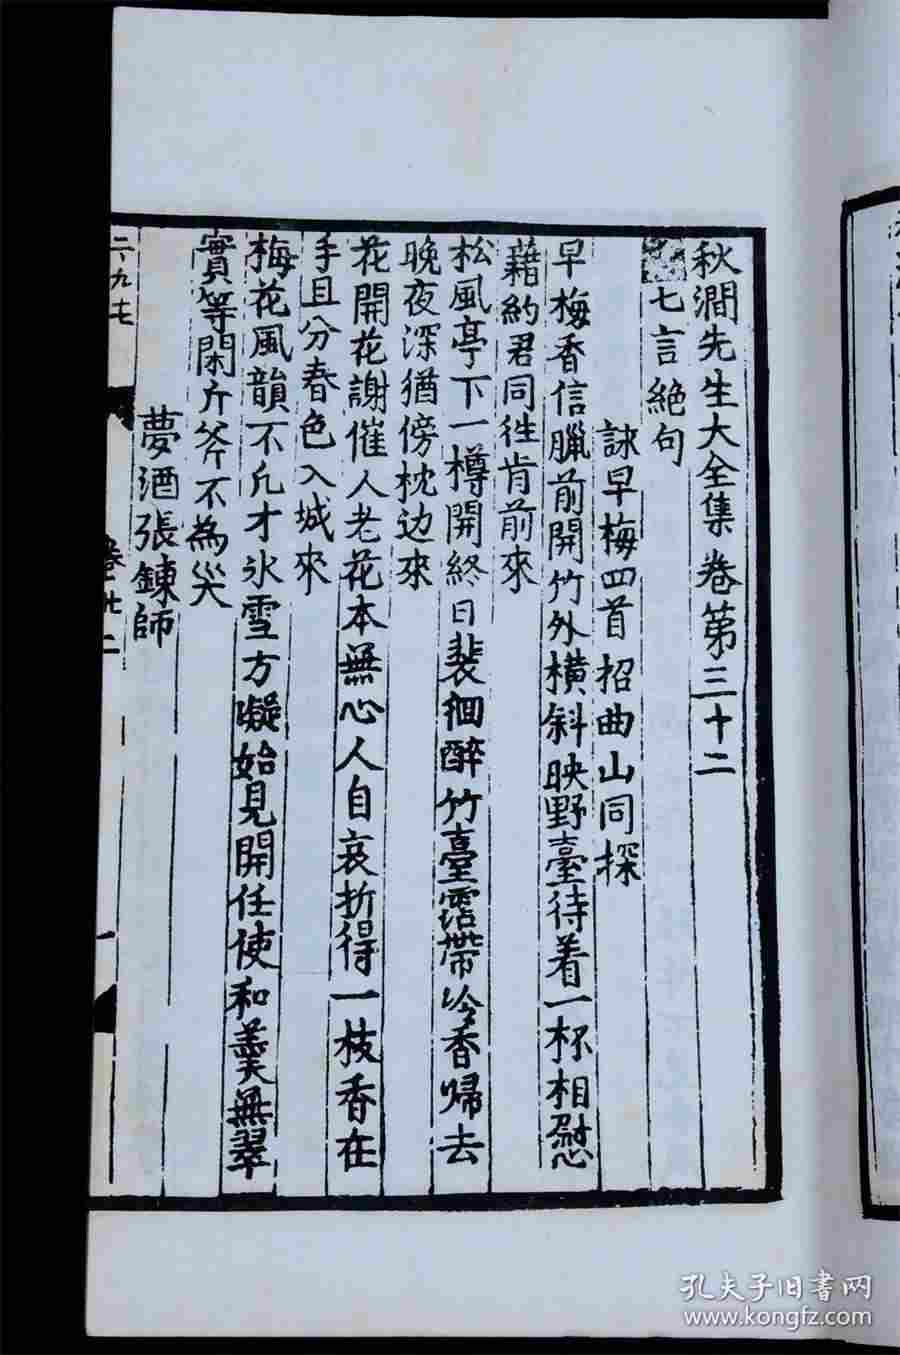 秋澗先生大全集卷第三十二
七言絶句
詠早梅四首招曲山同探
早梅香信臘前開竹外横斜映野臺待着一杯相慰
藉約君同徃肯前來
松風亭下一樽開終日裴徊醉竹臺霑帶冷香歸去
晚夜深猶傍枕边來
花開花謝催人老花本無心人自哀折得一枝香在
手且分春色入城來
梅花風韻不凡才氷雪方凝始見開任使和羹無翠
實等閑斤斧不為灾
夢酒張鍊師
二九七
卷卅二
一
孔夫子旧書网
www.kongfz.com